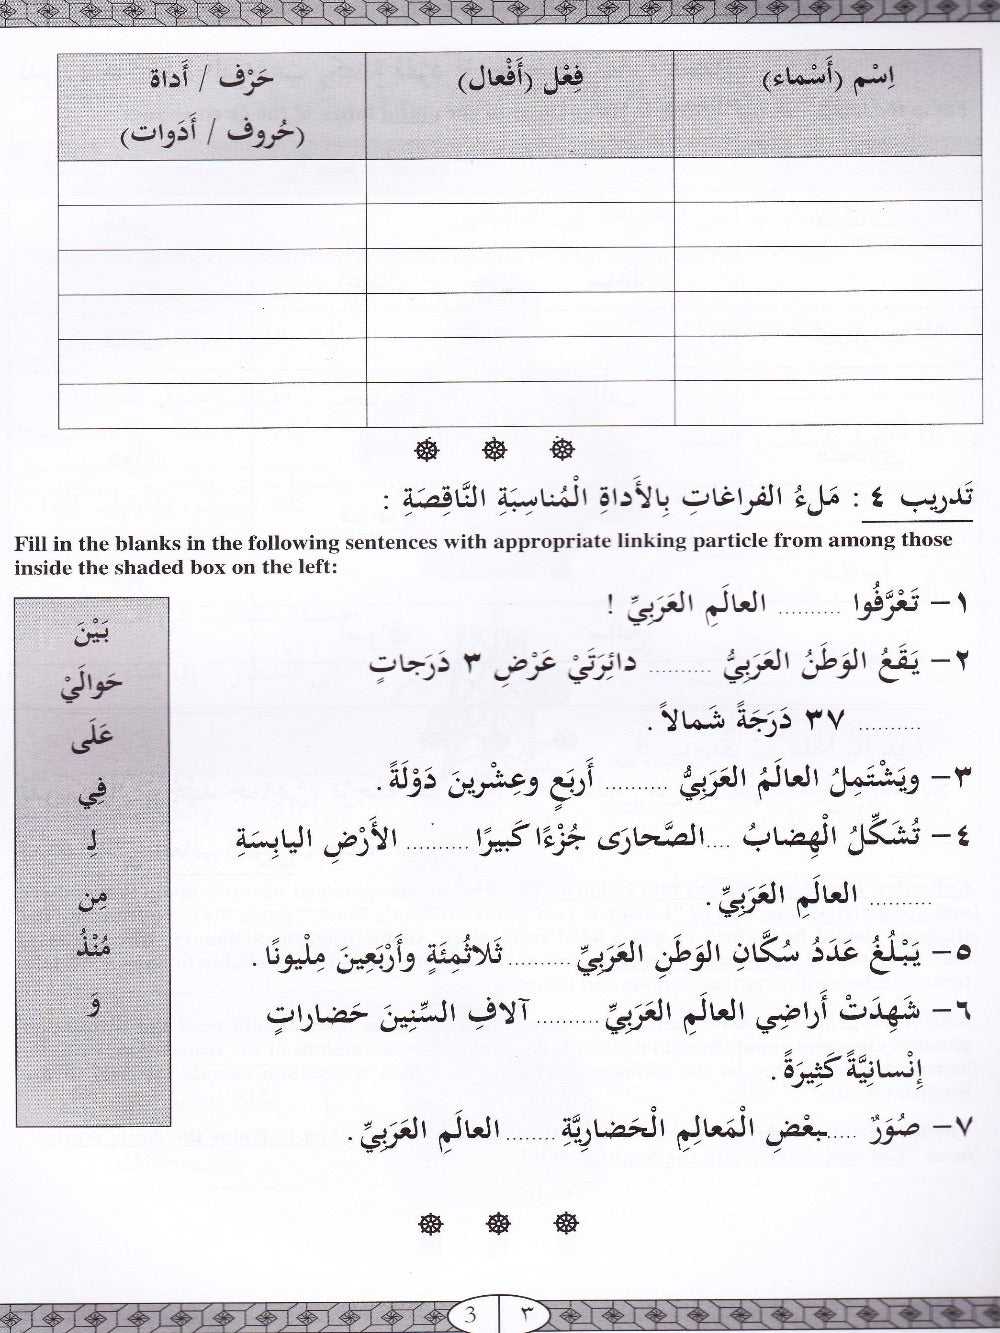 اِسْم (أَسْماء) فِعْل (أَفْعال) حَرْف / أَداة
(حُروف / أَدَوات)
تَدريب ٤ : مَلءُ الفراغاتِ بِالأَداةِ الْمُناسِبَةِ النَّاقِصَةِ :
Fill in the blanks in the following sentences with appropriate linking particle from among those
inside the shaded box on the left:
١– تَعْرَّفُوا .......... العالَمِ العَرَبِيِّ !
٢– يَقَعُ الوَطَنُ العَرَبِيُّ .......... دائِرَتَيْ عَرْضِ ٣ دَرَجاتٍ
.......... ٣٧ دَرَجَةً شَمالاً .
٣– ويَشْتَمِلُ العالَمُ العَرَبِيُّ .......... أَربَعٍ وعِشْرينَ دَوْلَةً .
٤– تُشَكِّلُ الْهِضابُ ....الصَّحارَى جُزْءًا كَبيرًا .......... الأَرْضِ اليابِسَةِ
.......... العالَمِ العَرَبِيِّ .
٥– يَبْلُغُ عَدَدُ سُكَّانِ الوَطَنِ العَرَبِيِّ ..........ثَلاثُمِئَةٍ وأَرْبَعِينَ مِلْيونًا .
٦– شَهِدَتْ أَراضِي العالَمِ العَرَبِيِّ .......... آلافِ السِّنِينَ حَضاراتٍ
إِنْسانِيَّةً كَثِيرَةً .
٧– صُوَرٌ .....بعْضِ الْمَعالِمِ الْحَضاريَّةِ ........العالَمِ العَرَبِيِّ .
بَيْنَ
حَوالَيْ
عَلَى
فِي
لِـ
مِن
مُنْذُ
وَ
3 ٣